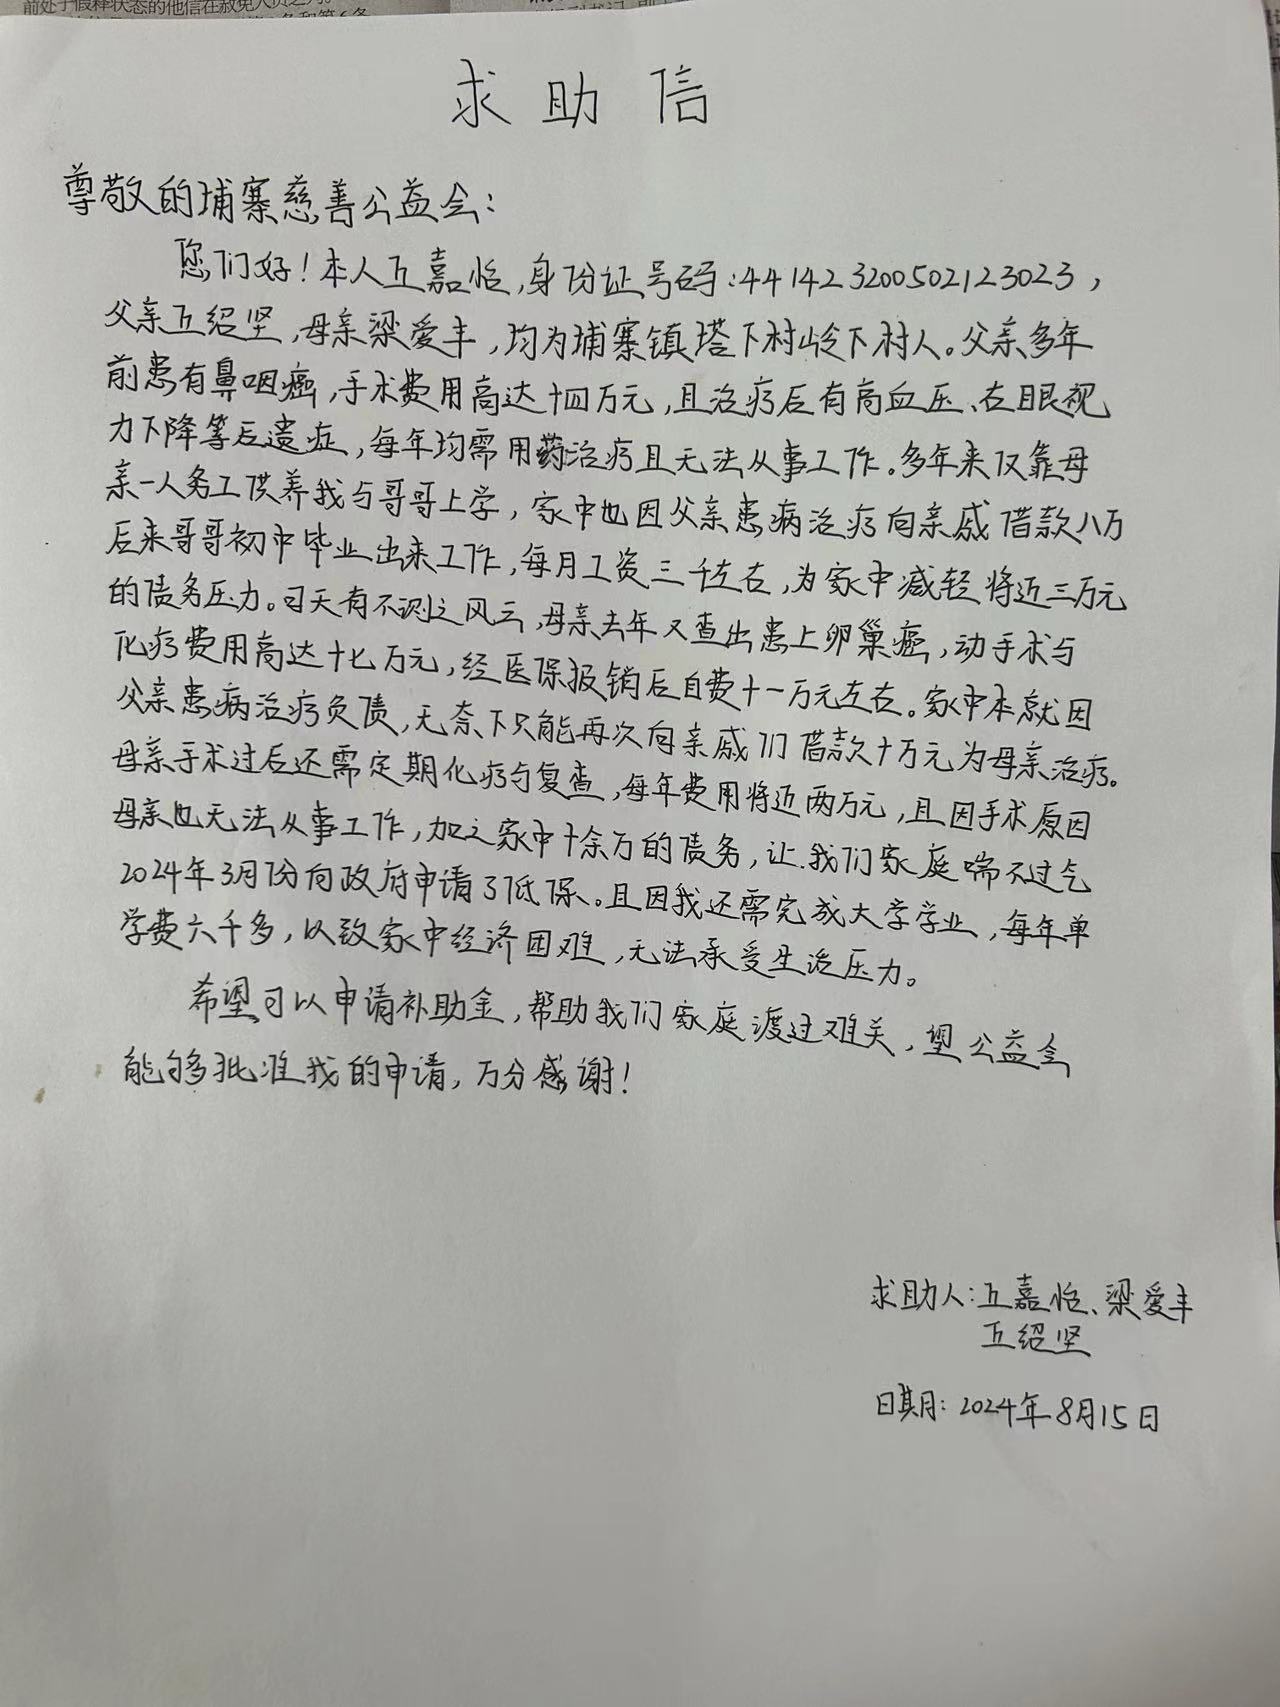 前处于假释状态的他信在赦免人员之列。
求助信
尊敬的埔寨慈善公益会：
您们好！本人丘嘉怡，身份证号码：441423200502123023，
父亲丘绍坚，母亲梁爱丰，均为埔寨镇塔下村岭下村人。父亲多年
前患有鼻咽癌，手术费用高达十四万元，且治疗后有高血压、左眼视
力下降等后遗症，每年均需用药治疗且无法从事工作。多年来仅靠母
亲一人务工供养我与哥哥上学，家中也因父亲患病治疗向亲戚借款八万
后来哥哥初中毕业出来工作，每月工资三千左右，为家中减轻将近三万元
的债务压力。可天有不测之风云，母亲去年又查出患上卵巢癌，动手术与
化疗费用高达十七万元，经医保报销后自费十一万元左右。家中本就因
父亲患病治疗负债，无奈下只能再次向亲戚们借款十万元为母亲治疗。
母亲手术过后还需定期化疗与复查，每年费用将近两万元，且因手术原因
母亲也无法从事工作，加之家中十余万的债务，让我们家庭喘不过气
2024年3月份向政府申请了低保。且因我还需完成大学学业，每年单
学费六千多，以致家中经济困难，无法承受生活压力。
希望可以申请补助金，帮助我们家庭渡过难关，望公益会
能够批准我的申请，万分感谢！
求助人：丘嘉怡、梁爱丰
丘绍坚
日期：2024年8月15日